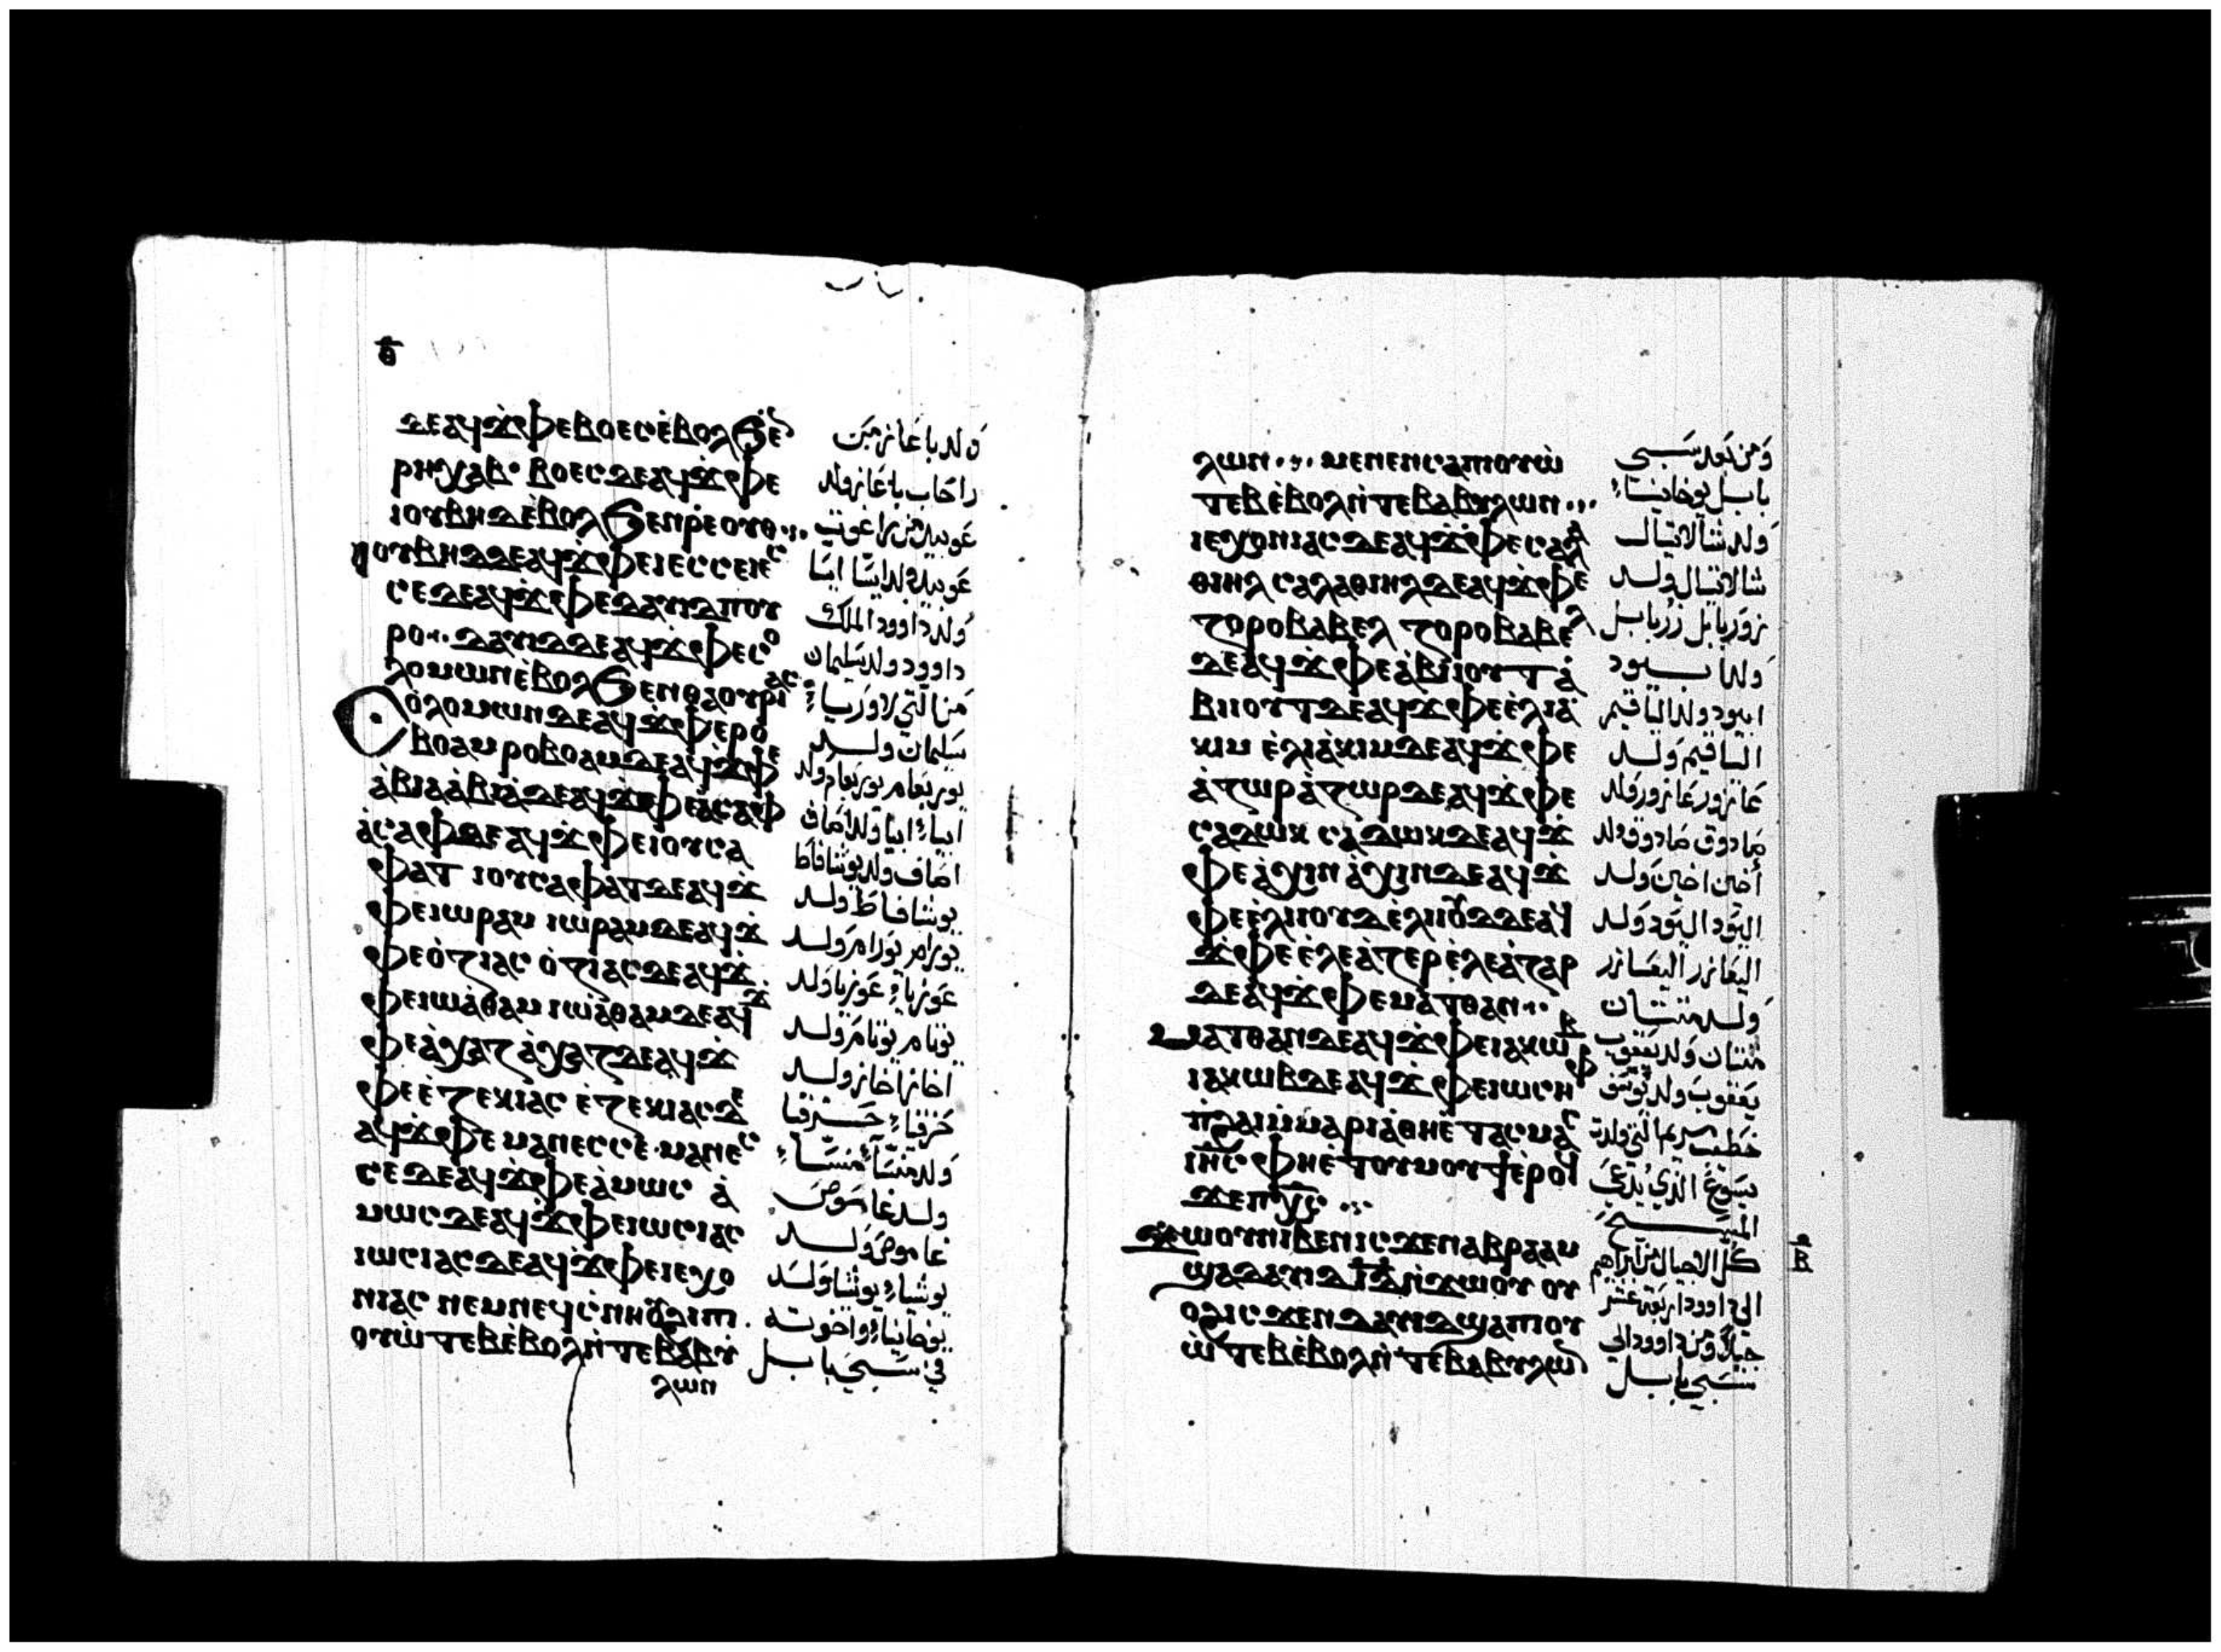 ⲑ
ⲇⲉ ⲁϥϫⲫⲉ ⲃⲟⲉⲥ ⲉⲃⲟⲗ ϧⲉⲛ
ⲣⲏⲭⲁⲃ· ⲃⲟⲉⲥ ⲇⲉ ⲁϥϫⲫⲉ
ⲓⲟⲩⲃⲏⲇ ⲉⲃⲟⲗ ϧⲉⲛ ⲣⲉⲟⲩⲑ
ⲓⲟⲩⲃⲏⲇ ⲇⲉ ⲁϥϫⲫⲉ ⲓⲉⲥⲥⲉ ⲓⲉⲥ
ⲥⲉ ⲇⲉ ⲁϥϫⲫⲉ ⲇⲁⲩⲓⲇ ⲡⲟⲩ
ⲣⲟ· ⲇⲁⲩⲓⲇ ⲇⲉ ⲁϥϫⲫⲉ ⲥⲟ
ⲗⲟⲙⲱⲛ ⲉⲃⲟⲗ ϧⲉⲛ ⲑⲁⲟⲩⲣⲓⲁⲥ
ⲥⲟⲗⲟⲙⲱⲛ ⲇⲉ ⲁϥϫⲫⲉ ⲣⲟ
ⲃⲟⲁⲙ ⲣⲟⲃⲟⲁⲙ ⲇⲉ ⲁϥϫⲫⲉ
ⲁⲃⲓⲁ ⲁⲃⲓⲁ ⲇⲉ ⲁϥϫⲫⲉ ⲁⲥⲁⲫ
ⲁⲥⲁⲫ ⲇⲉ ⲁϥϫⲫⲉ ⲓⲟⲩⲥⲁ
ⲫⲁⲧ ⲓⲟⲩⲥⲁⲫⲁⲧ ⲇⲉ ⲁϥϫ
ⲫⲉ ⲓⲱⲣⲁⲙ ⲓⲱⲣⲁⲙ ⲇⲉ ⲁϥϫ
ⲫⲉ ⲟⲍⲓⲁⲥ ⲟⲍⲓⲁⲥ ⲇⲉ ⲁϥϫ
ⲫⲉ ⲓⲱⲁⲑⲁⲙ ⲓⲱⲁⲑⲁⲙ ⲇⲉ ⲁϥϫ
ⲫⲉ ⲁⲭⲁⲍ ⲁⲭⲁⲍ ⲇⲉ ⲁϥϫ
ⲫⲉ ⲉⲍⲉⲕⲓⲁⲥ ⲉⲍⲉⲕⲓⲁⲥ ⲇⲉ
ⲁϥϫⲫⲉ ⲙⲁⲛⲉⲥⲥⲉ· ⲙⲁⲛⲉⲥ
ⲥⲉ ⲇⲉ ⲁϥϫⲫⲉ ⲁⲙⲱⲥ ⲁ
ⲙⲱⲥ ⲇⲉ ⲁϥϫⲫⲉ ⲓⲱⲥⲓⲁⲥ
ⲓⲱⲥⲓⲁⲥ ⲇⲉ ⲁϥϫⲫⲉ ⲓⲉⲭⲟ
ⲛⲓⲁⲥ ⲛⲉⲙ ⲛⲉϥⲥⲛⲏⲟⲩ ϩⲓ ⲡⲓ
ⲟⲩⲱⲧⲉⲃ ⲉⲃⲟⲗ ⲛⲧⲉ ⲃⲁⲃⲩ
ⲗⲱⲛ
ولد باعاز من
راحاب باعاز ولد
عوبيد من راعوت
عوبيد ولد ايسا ايسا
ولد داوود الملك
داوود ولد سليمان
من التي لاورياء
سليمان ولد
يوربعام يوربعام ولد
ابياء ابيا ولد اصاف
اصاف ولد يوشافاط
يوشافاط ولد
يورام يورام ولد
عوزياء عوزيا ولد
يوتام يوتام ولد
اخاز اخاز ولد
حزقياء حزقيا
ولد منسا منساء
ولد عاموص
عاموص ولد
يوشياء يوشيا ولد
يوخانياء واخوته
في سبي بابل
ⲗⲱⲛ ⲙⲉⲛⲉⲛⲥⲁ ⲡⲓⲟⲩⲱ
ⲧⲉⲃ ⲉⲃⲟⲗ ⲛⲧⲉ ⲃⲁⲃⲩⲗⲱⲛ
ⲓⲉⲭⲟⲛⲓⲁⲥ ⲇⲉ ⲁϥϫⲫⲉ ⲥⲁⲗⲁ
ⲑⲓⲏⲗ ⲥⲁⲗⲁⲑⲓⲏⲗ ⲇⲉ ⲁϥϫⲫⲉ
ⲍⲟⲣⲟⲃⲁⲃⲉⲗ ⲍⲟⲣⲟⲃⲁⲃⲉⲗ
ⲇⲉ ⲁϥϫⲫⲉ ⲁⲃⲓⲟⲩⲧ ⲁ
ⲃⲓⲟⲩⲧ ⲇⲉ ⲁϥϫⲫⲉ ⲉⲗⲓⲁ
ⲕⲓⲙ ⲉⲗⲓⲁⲕⲓⲙ ⲇⲉ ⲁϥϫⲫⲉ
ⲁⲍⲱⲣ ⲁⲍⲱⲣ ⲇⲉ ⲁϥϫⲫⲉ
ⲥⲁⲇⲱⲕ ⲥⲁⲇⲱⲕ ⲇⲉ ⲁϥϫ
ⲫⲉ ⲁⲭⲓⲛ ⲁⲭⲓⲛ ⲇⲉ ⲁϥϫ
ⲫⲉ ⲉⲗⲓⲟⲩⲇ ⲉⲗⲓⲟⲩⲇ ⲇⲉ ⲁϥ
ϫⲫⲉ ⲉⲗⲉⲁⲍⲉⲣ ⲉⲗⲉⲁⲍⲁⲣ
ⲇⲉ ⲁϥϫⲫⲉ ⲙⲁⲧⲑⲁⲛ
ⲙⲁⲧⲑⲁⲛ ⲇⲉ ⲁϥϫⲫⲉ ⲓⲁⲕⲱⲃ
ⲓⲁⲕⲱⲃ ⲇⲉ ⲁϥϫⲫⲉ ⲓⲱⲥⲏⲫ
ⲡϩⲁⲓ ⲙⲙⲁⲣⲓⲁ ⲑⲏⲉⲧⲁⲥⲙⲁⲥ
ⲓⲏⲥ ⲫⲏⲉⲧⲟⲩⲙⲟⲩϯ ⲉⲣⲟϥ
ϫⲉ ⲡⲭⲥ
ϫⲱⲟⲩ ⲛⲓⲃⲉⲛ ⲓⲥϫⲉⲛ ⲁⲃⲣⲁⲁⲙ
ϣⲁ ⲇⲁⲩⲓⲇ ⲓⲇ ⲛϫⲱⲟⲩ ⲟⲩ
ⲟϩ ⲓⲥϫⲉⲛ ⲇⲁⲩⲓⲇ ϣⲁ ⲡⲓⲟⲩ
ⲱⲧⲉⲃ ⲉⲃⲟⲗ ⲛⲧⲉ ⲃⲁⲃⲩⲗⲱⲛ
ومن بعد سبي
بابل يوخانياء
ولد شالاتيال
شالاتيال ولد
زوربابل زربابل
ولد ابيود
ابيود ولد الياقيم
الياقيم ولد
عازور عازور ولد
صادوق صادوق ولد
أخين اخين ولد
اليود اليود ولد
اليعازر اليعازر
ولد متتان
متتان ولد يعقوب
يعقوب ولد يوسف
خطيب مريم التي ولدت
يسوع الذي يدعى
المسيح
كل الاجيال من ابراهيم
الى داوود اربعة عشر
جيلا ومن داوود الى
سبي بابل
ⲃ